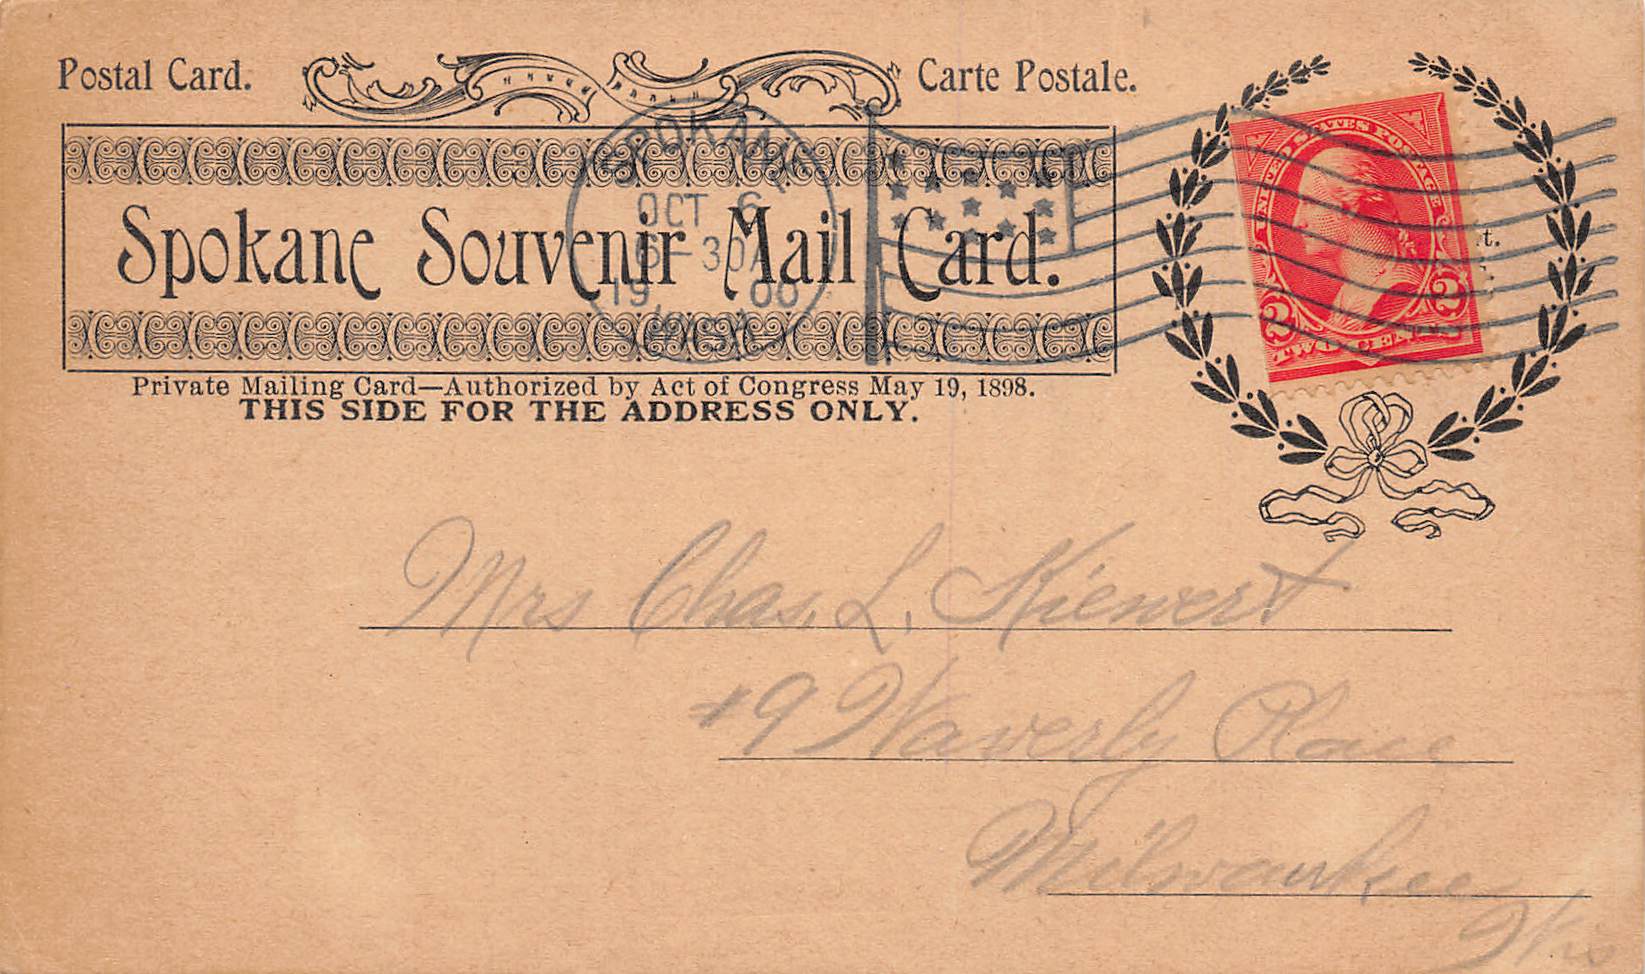 Postal Card. Carte Postale.
SPOKANE
OCT 6
6-30A
1900
WASH.
UNITED STATES POSTAGE
2 2
TWO CENTS
t.
Spokane Souvenir Mail Card.
Private Mailing Card—Authorized by Act of Congress May 19, 1898.
THIS SIDE FOR THE ADDRESS ONLY.
Mrs Chas. L. Kiewert
#9 Waverly Place
Milwaukee
Wis